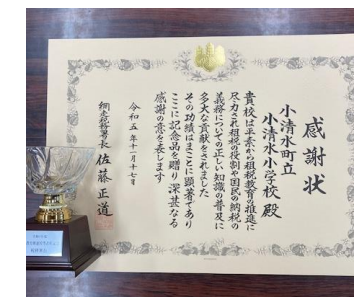 感謝状
小清水町立
小清水小学校 殿
貴校は平素から租税教育の推進に
尽力され租税の役割や国民の納税の
義務についての正しい知識の普及に
多大な貢献をされました
その功績はまことに顕著であり
ここに記念品を贈り深甚なる
感謝の意を表します
令和五年十一月十七日
網走税務署長 佐藤正道